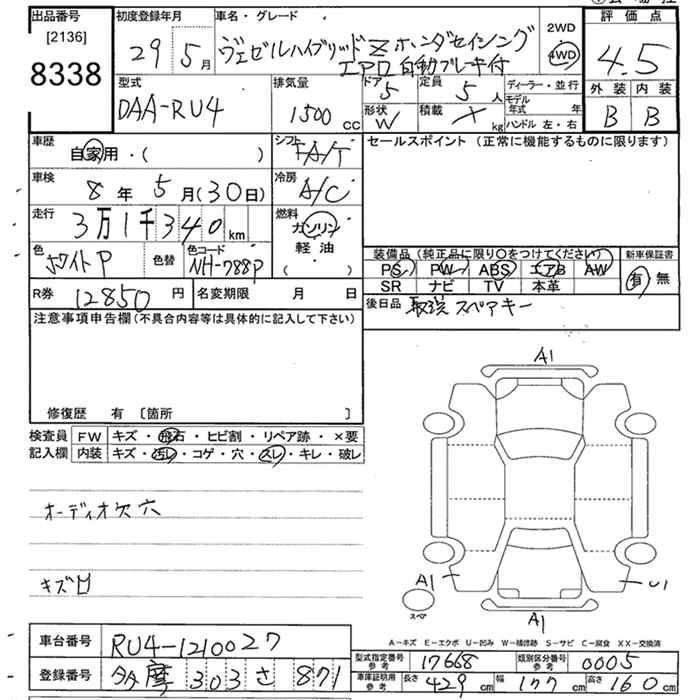 出品番号 初度登録年月 車名・グレード 2WD 4WD 評価点
[2136]
8338
29年5月 ヴェゼルハイブリッド Z ホンダセイシング
エアロ 自動ブレーキ付
4.5
型式 排気量 ドア 定員 ディーラー・並行 外装 内装
DAA-RU4 1500 cc 5 5人 モデル年式 年 B B
形状 W 積載 kg ハンドル 左・右
車歴 自家用・( ) シフト FA/T
セールスポイント (正常に機能するものに限ります)
車検 8年5月(30日) 冷房 A/C
走行 3万1千340km 燃料 ガソリン
軽油
( )
色 ホワイトP 色替 色コード NH-788P
装備品 (純正品に限り○をつけてください) 新車保証書
PS PW ABS エアB AW 有 無
SR ナビ TV 本革
R券 12850円 名変期限 月 日
後日品 取説 スペアキー
注意事項申告欄 (不具合内容等は具体的に記入して下さい)
修復歴 有 [箇所 ]
検査員 FW キズ・飛石・ヒビ割・リペア跡・×要
記入欄 内装 キズ・汚レ・コゲ・穴・スレ・キレ・破レ
オーディオ欠 穴
キズ日
A1
A1
U1
スペア
A1
A-キズ E-エクボ U-凹み W-補修跡 S-サビ C-腐食 XX-交換済
車台番号 RU4-1210027
型式指定番号 参考 17668 類別区分番号 参考 0005
登録番号 多摩 303 さ 871
車庫証明用 参考 長さ 429cm 幅 177cm 高さ 160cm